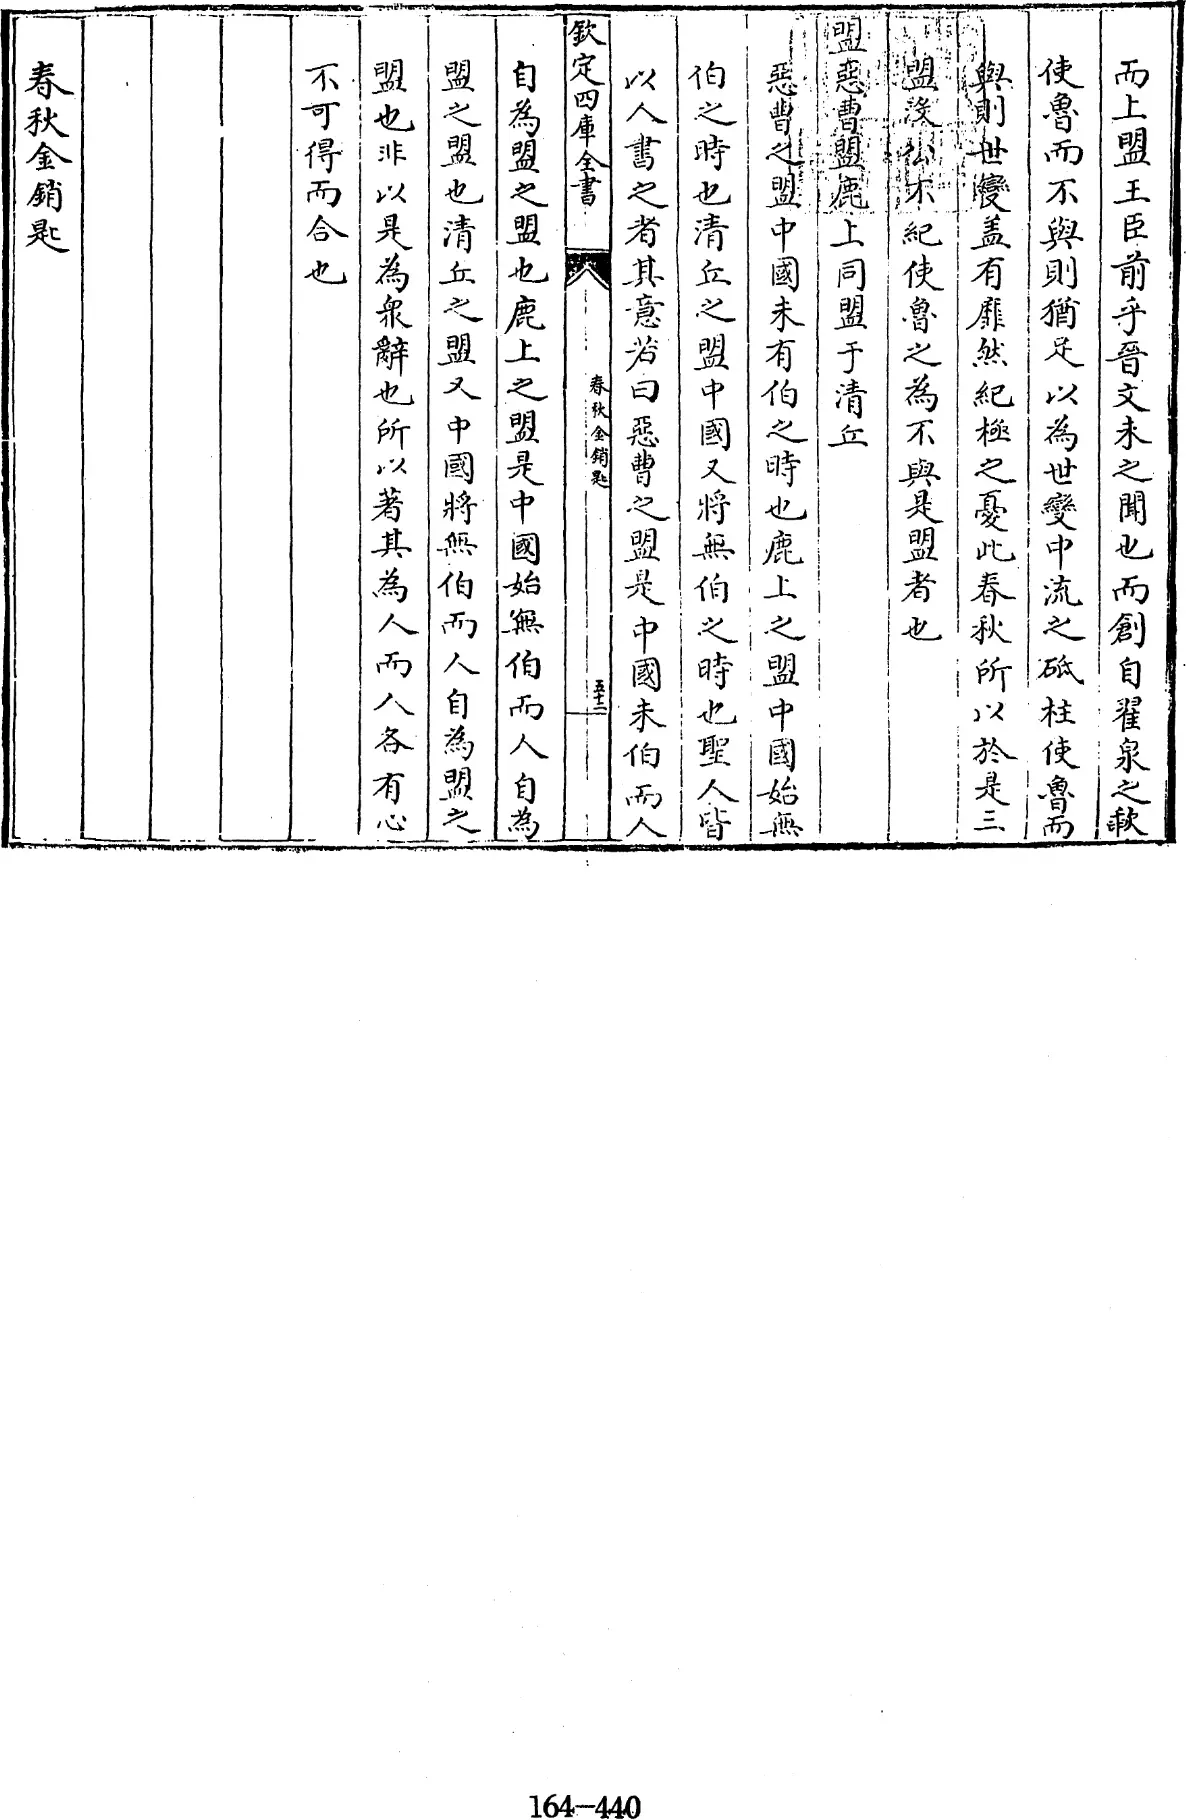 而上盟王臣前乎晉文未之聞也而創自翟泉之歃
使魯而不與則猶足以為世變中流之砥柱使魯而
與則世變盖有靡然紀極之憂此春秋所以於是三
盟没公不紀使魯之為不與是盟者也
盟惡曹盟鹿上同盟于清丘
惡曹之盟中國未有伯之時也鹿上之盟中國始無
伯之時也清丘之盟中國又將無伯之時也聖人皆
以人書之者其意若曰惡曹之盟是中國未伯而人
欽定四庫全書
春秋金鎖匙
五十二
自為盟之盟也鹿上之盟是中國始無伯而人自為
盟之盟也清丘之盟又中國將無伯而人自為盟之
盟也非以是為衆辭也所以著其為人而人各有心
不可得而合也
春秋金鎖匙
164-440